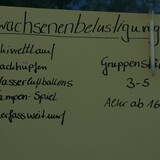 wachsenenbelustigung
kiwettlauf
ackhüpfen
Wasserluftballons
ampon-Spiel
ierfassweitwurf
Gruppenstär
3-5
Alter ab 16